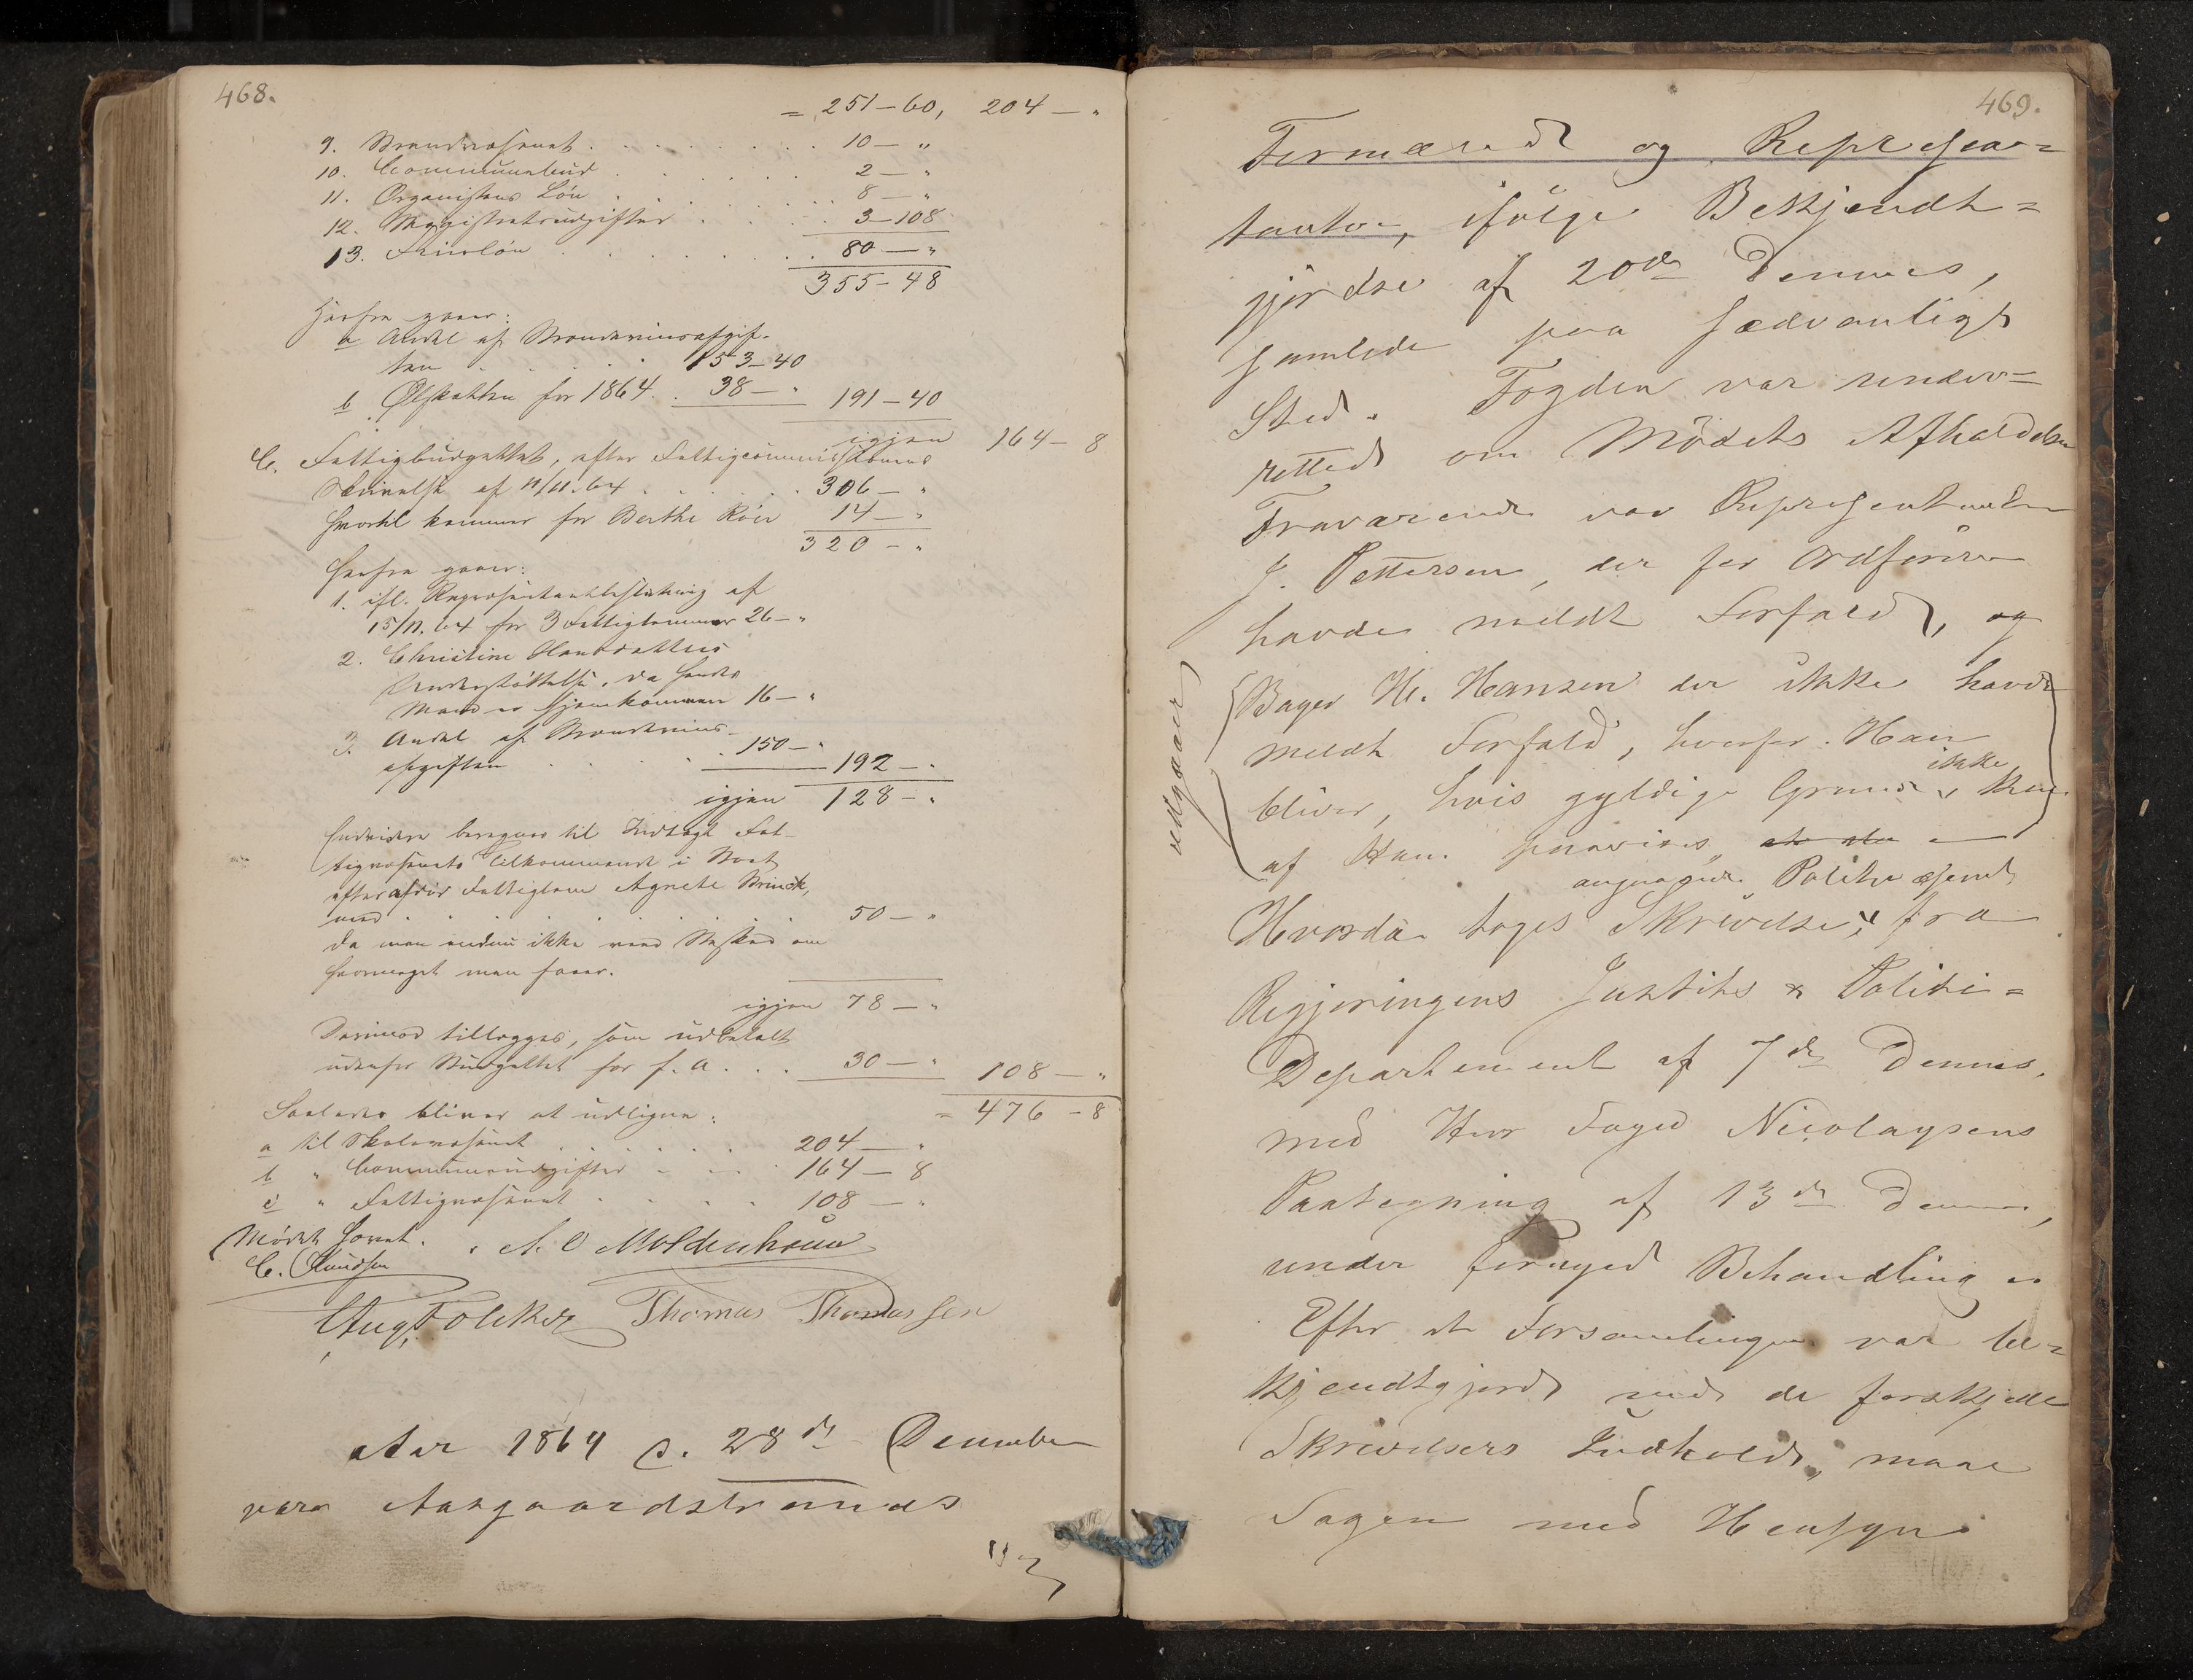 468.
= 251–60, 204 – "
9. Brandvæsenet . . . . . . . 10 – "
10. Communebud . . . . . . 2 – "
11. Organistens Løn . . . . . . 8 – "
12. Magistratsudgifter . . . 3–108
13. . . . . . . . . 80 – "
355–48
Herfra gaaer:
a Andel af Brændeviinsafgif-
ten . . . . . 153–40
b Ølskatten for 1864. . 38 – " 191–40
igjen 164–8
C. Fattigbudgettet, efter Fattigcommissionens
Skrivelse af 11/11.64 . . . . . . 306 – "
hvortil kommer for Berthe 14 – "
320 – "
Herfra gaaer:
1. ifl. Repræsentantbeslutning af
15/11.64 for 3 Fattiglemmer 26 – "
2. Christine Olausdatters
Understøttelse, da hendes
Mand er hjemkommen 16 – "
3. Andel af Brændeviins-
afgiften . . . . . 150 – "
192 – "
igjen 128 – "
Endvidere beregnes til Indtægt Fat-
tigvæsenets Tilkommende i Boet
efter afdøde Fattiglem Agnete Brinck,
med . . . . . . . . 50 – "
da man endnu ikke veed Besked om
hvormeget man faaer.
igjen 78 – "
Derimod tillægges, som udbetalt
udenfor Budgettet for f. A. . . . 30 – " 108 – "
Saaledes bliver at udligne: = 476–8
a til Skolevæsenet . . . . . . 204 – "
b " Communeudgifter . . . . 164–8
c " Fattigvæsenet . . . . . 108 – "
Mødet hævet.
C. Knudsen A. O Moldenhauer
Aug. Folcker Thomas Thomassen
Aar 1864 d. 28de December
vare Aasgaardstrands
469.
Formænd og Represen=
tanter, ifölge Bekjendt=
gjördse af 20de Dennes,
samlede paa sædvanligt
Sted. Fogden var under=
rettet om Mödets Afholdelse
Fraværende var Representanten
J. Pettersen, der for Ordföreren
havde meldt Forfald, og
udgaaer
Bager H. Hansen der ikke havde
meldt Forfald, hvorfor Han
bliver, hvis gyldige Grunde ikke kan
af Ham paavises,
angaaende Politievæsenet
Hvorda toges Skrivelse, fra
Regjeringens Justits & Politi=
Departement af 7de Dennes,
med Herr Foged Nicolaysens
Paategning af 13de Dennes,
under fornyed Behandling.
Efter at Forsamlingen var be=
kjendtgjord med de forskjelle
Skrivelsers Indhold, maae
Sagen med Hensyn